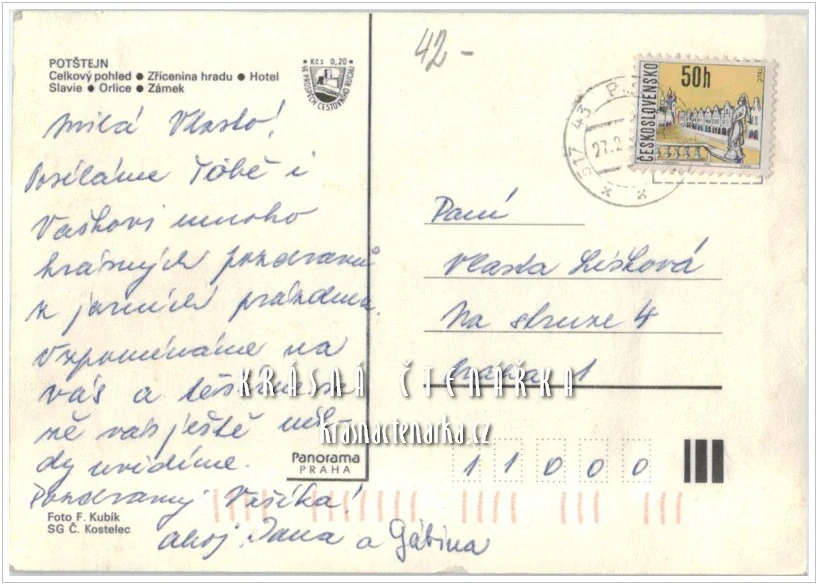 POTŠTEJN
Celkový pohled ● Zřícenina hradu ● Hotel
Slavie ● Orlice ● Zámek
Kčs 0,20
VE PROSPĚCH CESTOVNÍHO RUCHU
42-
517 43 P
27.2
ČESKOSLOVENSKO
50h
Milá Vlasto!
Posíláme Tobě i
Vaškovi mnoho
krásných pozdravů
z jarních prázdnin.
Vzpomínáme na
vás a těšíme se
že vás ještě někdy
uvidíme.
Pozdravuj Vašíka!
ahoj Jana a Gábina
Paní
Vlasta Lišková
Na struze 4
Praha 1
11000
KRÁSNÁ ČTENÁŘKA
krasnactenarka.cz
Panorama
PRAHA
Foto F. Kubík
SG Č. Kostelec